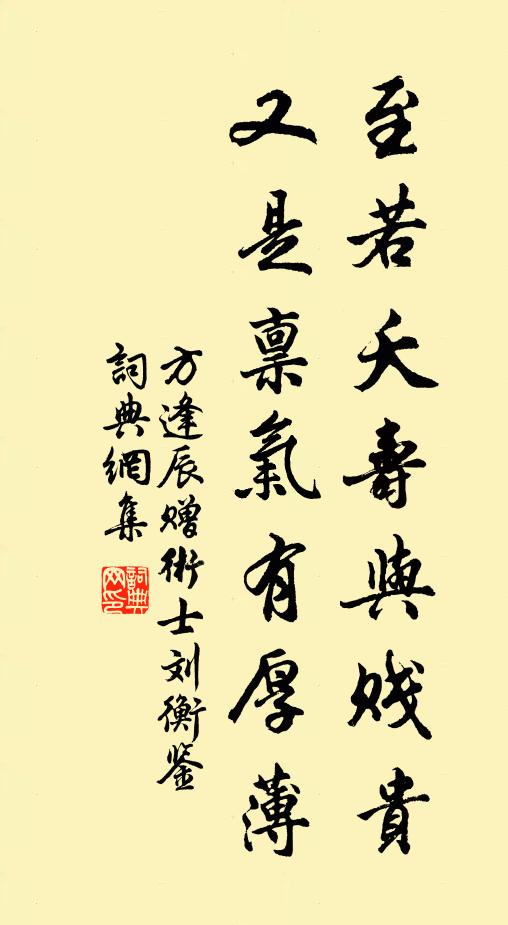 至若夭壽與贱貴
又是禀氣有厚薄
方逢辰赠術士刘衡鉴
詞典網集
詞典
网印